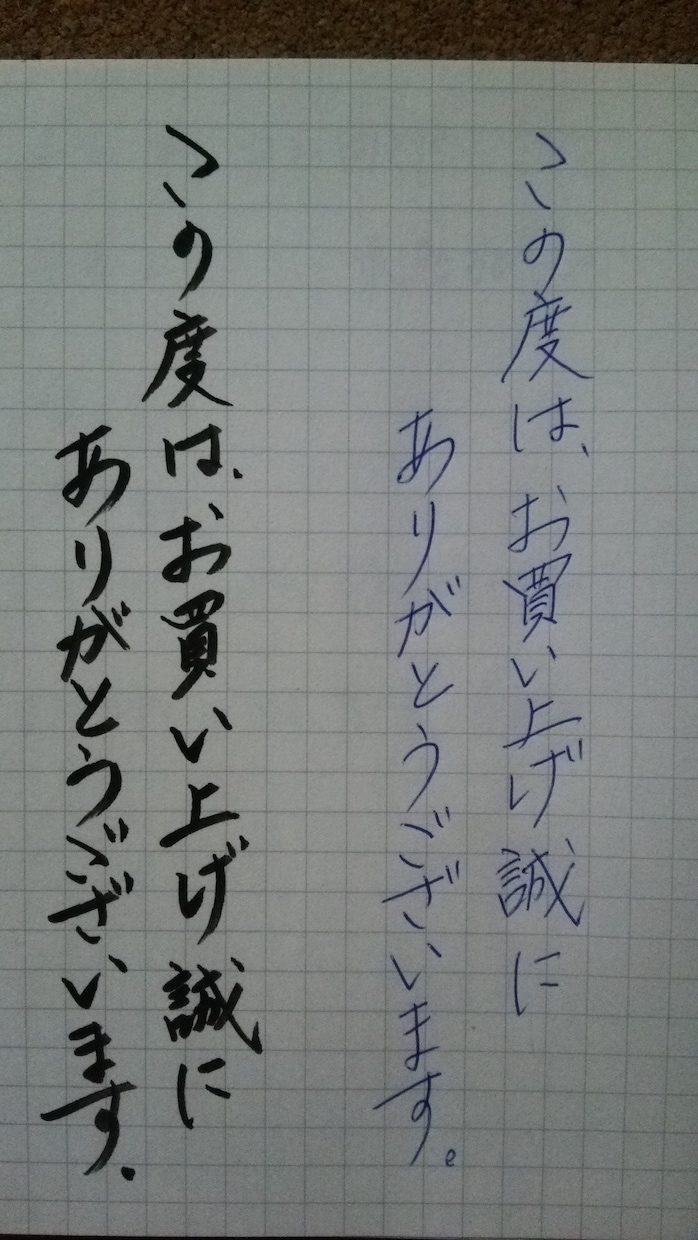 この度は、お買い上げ誠に
ありがとうございます。
この度は、お買い上げ誠に
ありがとうございます.